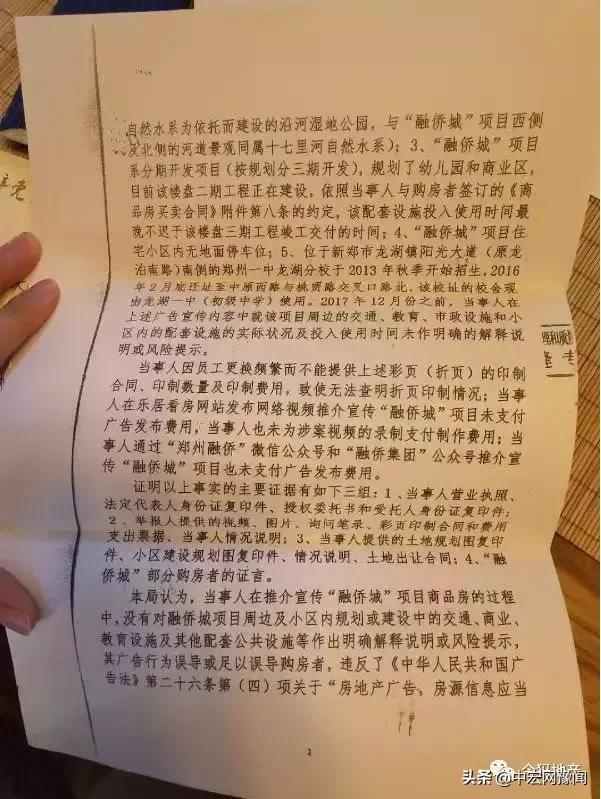 自然水系为依托而建设的沿河湿地公园，与“融侨城”项目西侧
及北侧的河道景观同属十七里河自然水系）；3、“融侨城”项目
系分期开发项目（按规划分三期开发），规划了幼儿园和商业区，
目前该楼盘二期工程正在建设，依照当事人与购房者签订的《商
品房买卖合同》附件第八条的约定，该配套设施投入使用时间最
晚不迟于该楼盘三期工程竣工交付的时间；4、“融侨城”项目住
宅小区内无地面停车位；5、位于新郑市龙湖镇阳光大道（原龙
泊南路）南侧的郑州一中龙湖分校于2013年秋季开始招生，2016
年2月底迁址至中原西路与桃贾路交叉口路北，该校址的校舍现
由龙湖一中（初级中学）使用。2017年12月份之前，当事人在
上述广告宣传内容中就该项目的交通、教育、市政设施和小
区内的配套设施的实际状况及投入使用时间未作明确的解释说
明或风险提示。
当事人因员工更换频繁而不能提供上述彩页（折页）的印制
合同、印制数量及印制费用，致使无法查明折页印制情况；当事
人在乐居看房网站发布网络视频推介宣传“融侨城”项目未支付
广告发布费用，当事人也未为涉案视频的录制支付制作费用；当
事人通过“郑州融侨”微信公众号和“融侨集团”公众号推介宣
传“融侨城”项目也未支付广告发布费用。
证明以上事实的主要证据有如下三组：1、当事人营业执照、
法定代表人身份证复印件、授权委托书和受托人身份证复印件；
2、举报人提供的视频、图片、询问笔录、彩页印制合同和费用
支出票据、当事人情况说明；3、当事人提供的土地规划图复印
件、小区建设规划图复印件、情况说明、土地出让合同；4、“融
侨城”部分购房者的证言。
本局认为，当事人在推介宣传“融侨城”项目商品房的过程
中，没有对融侨城项目周边及小区内规划或建设中的交通、商业、
教育设施及其他配套公共设施等作出明确解释说明或风险提示，
其广告行为误导或足以误导购房者，违反了《中华人民共和国广
告法》第二十六条第（四）项关于“房地产广告，房源信息应当
2
头条 @中宏网豫闻